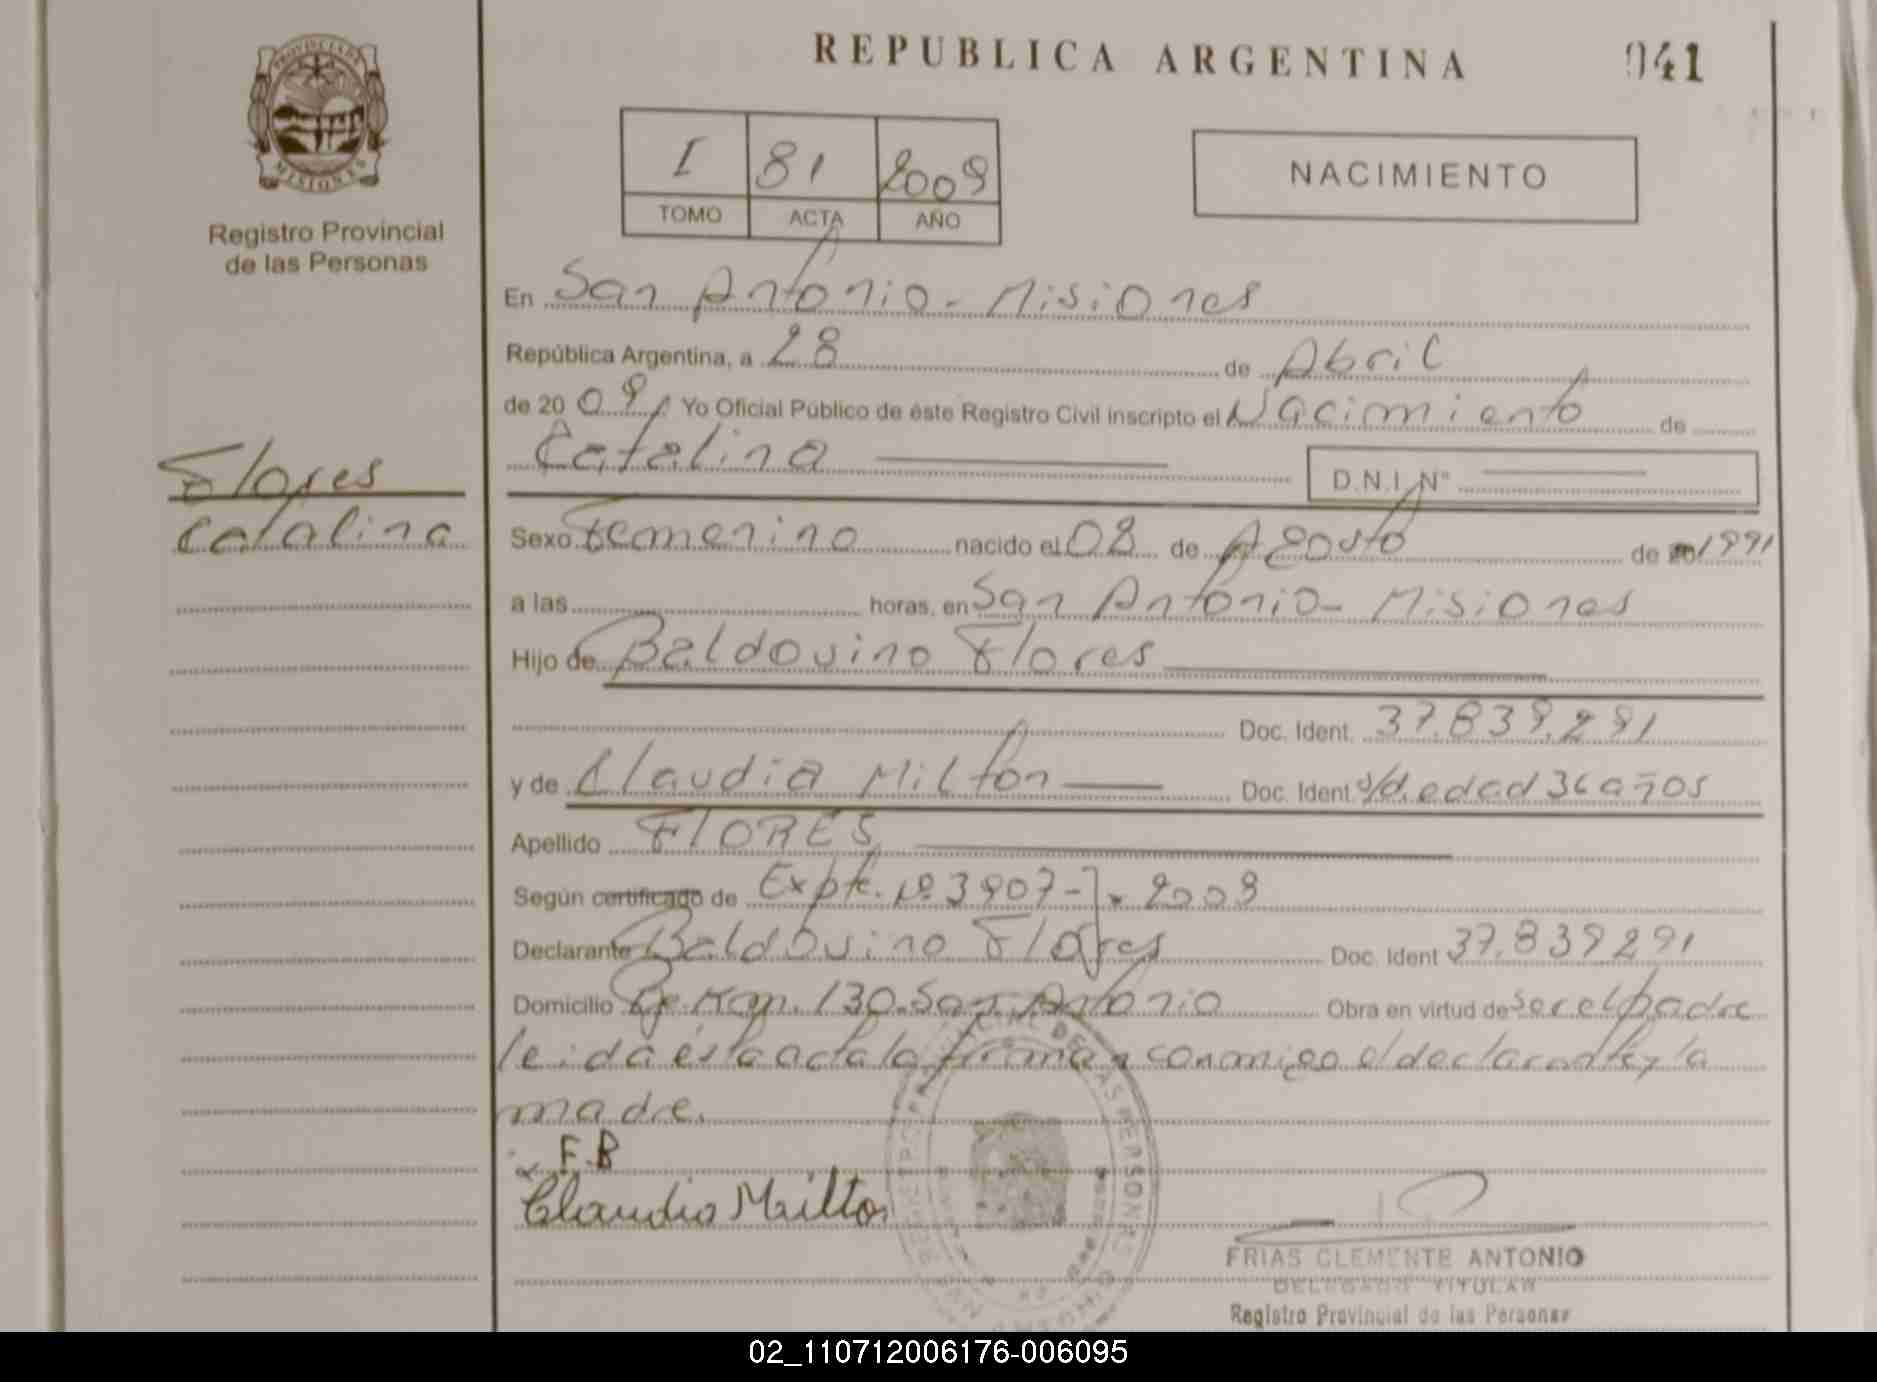 REPUBLICA ARGENTINA
041
PROVINCIA DE
MISIONES
Registro Provincial
de las Personas
I 81 2009
TOMO ACTA AÑO
NACIMIENTO
En San Antonio - Misiones
República Argentina, a 28 de Abril
de 20 09, Yo Oficial Público de éste Registro Civil inscripto el Nacimiento de
Catalina
D.N.I. Nº
Flores
Catalina
Sexo Femenino nacido el 08 de Agosto de 20 1991
a las horas, en San Antonio - Misiones
Hijo de Baldovino Flores
Doc. Ident. 37.839.291
y de Claudia Milton Doc. Ident. s/d. edad 36 años
Apellido FLORES
Según certificado de Expte. Nº 3907-J-2009
Declarante Baldovino Flores Doc. Ident 37.839291
Domicilio 130. San Antonio Obra en virtud de ser el padre
leida ésta acta la firman conmigo el declarante y la
madre.
F.B
Claudio Milton
FRIAS CLEMENTE ANTONIO
DELEGADO TITULAR
Registro Provincial de las Personas
02_110712006176-006095